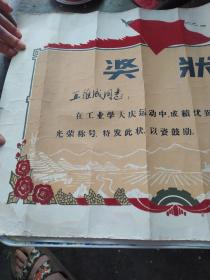 奖状
王维成同志：
在工业学大庆运动中，成绩优异
光荣称号，特发此状，以资鼓励。